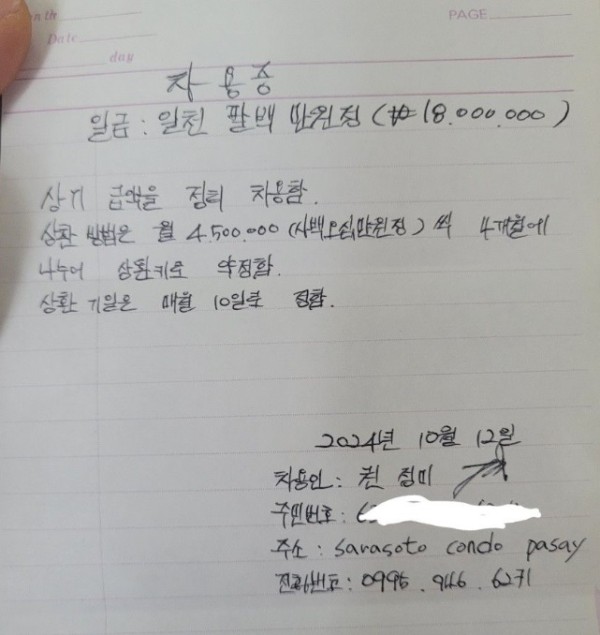 nth
Date
day
PAGE
차용증
일금 : 일천 팔백 만원정 (₩ 18.000.000)
상기 금액을 정히 차용함.
상환 방법은 월 4.500.000 (사백오십만원정) 씩 4개월에
나누어 상환키로 약정함.
상환 기일은 매월 10일로 정함.
2024년 10월 12일
차용인 : 권 정미
주민번호 :
주소 : sarasoto condo pasay
전화번호 : 0995 . 946 . 6271